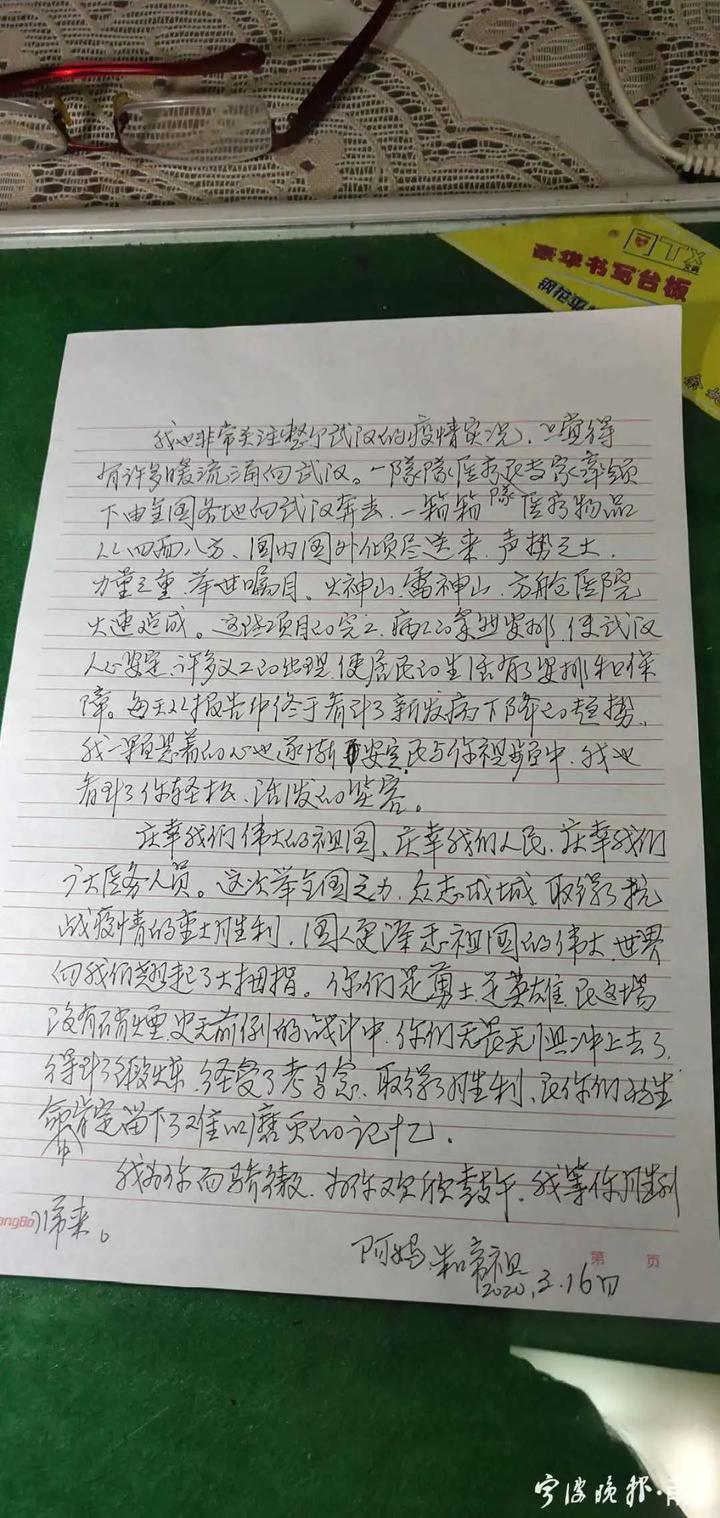 TX
豪华书写台板
我也非常关注整个武汉的疫情实况、只觉得
有许多暖流涌向武汉。一队队医疗队专家率领
下由全国各地向武汉奔去、一箱箱医疗物品
从四面八方、国内国外倾尽送来、声势之大、
力量之重、举世嘱目。火神山、雷神山、方舱医院
火速造成。这些项目的完工、病人的策进安排、使武汉
人心安定、许多义工的出现、使居民的生活有了安排和保
障。每天从报告中终于看到了新发病下降的趋势、
我一颗悬着的心也逐渐安定、在与你视频中、我也
看到了你轻松、活泼的笑容。
庆幸我们伟大的祖国、庆幸我们人民、庆幸我们
广大医务人员。这次举全国之力、众志成城、取得了抗
战疫情的重大胜利、国人更深志祖国的伟大、世界
向我们翘起了大拇指。你们是勇士是英雄、在这场
没有硝烟、史无前例的战斗中、你们无畏无惧冲上去了、
得到了锻炼、经受了考验、取得了胜利、在你们的生
命中肯定留下了难以磨灭的记忆、
我为你而骄傲、为你欢欣鼓午、我等你胜利
归来。
angBo
第 页
阿妈
2020.3.16日
宁波晚报·